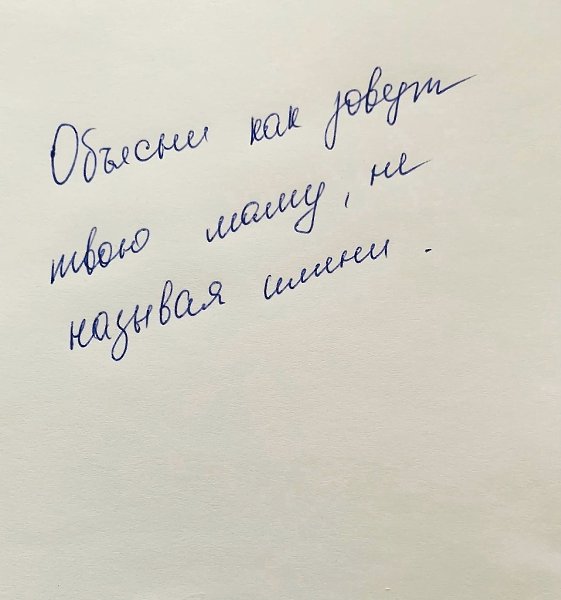 Объясни как зовут
твою маму, не
называя имени.